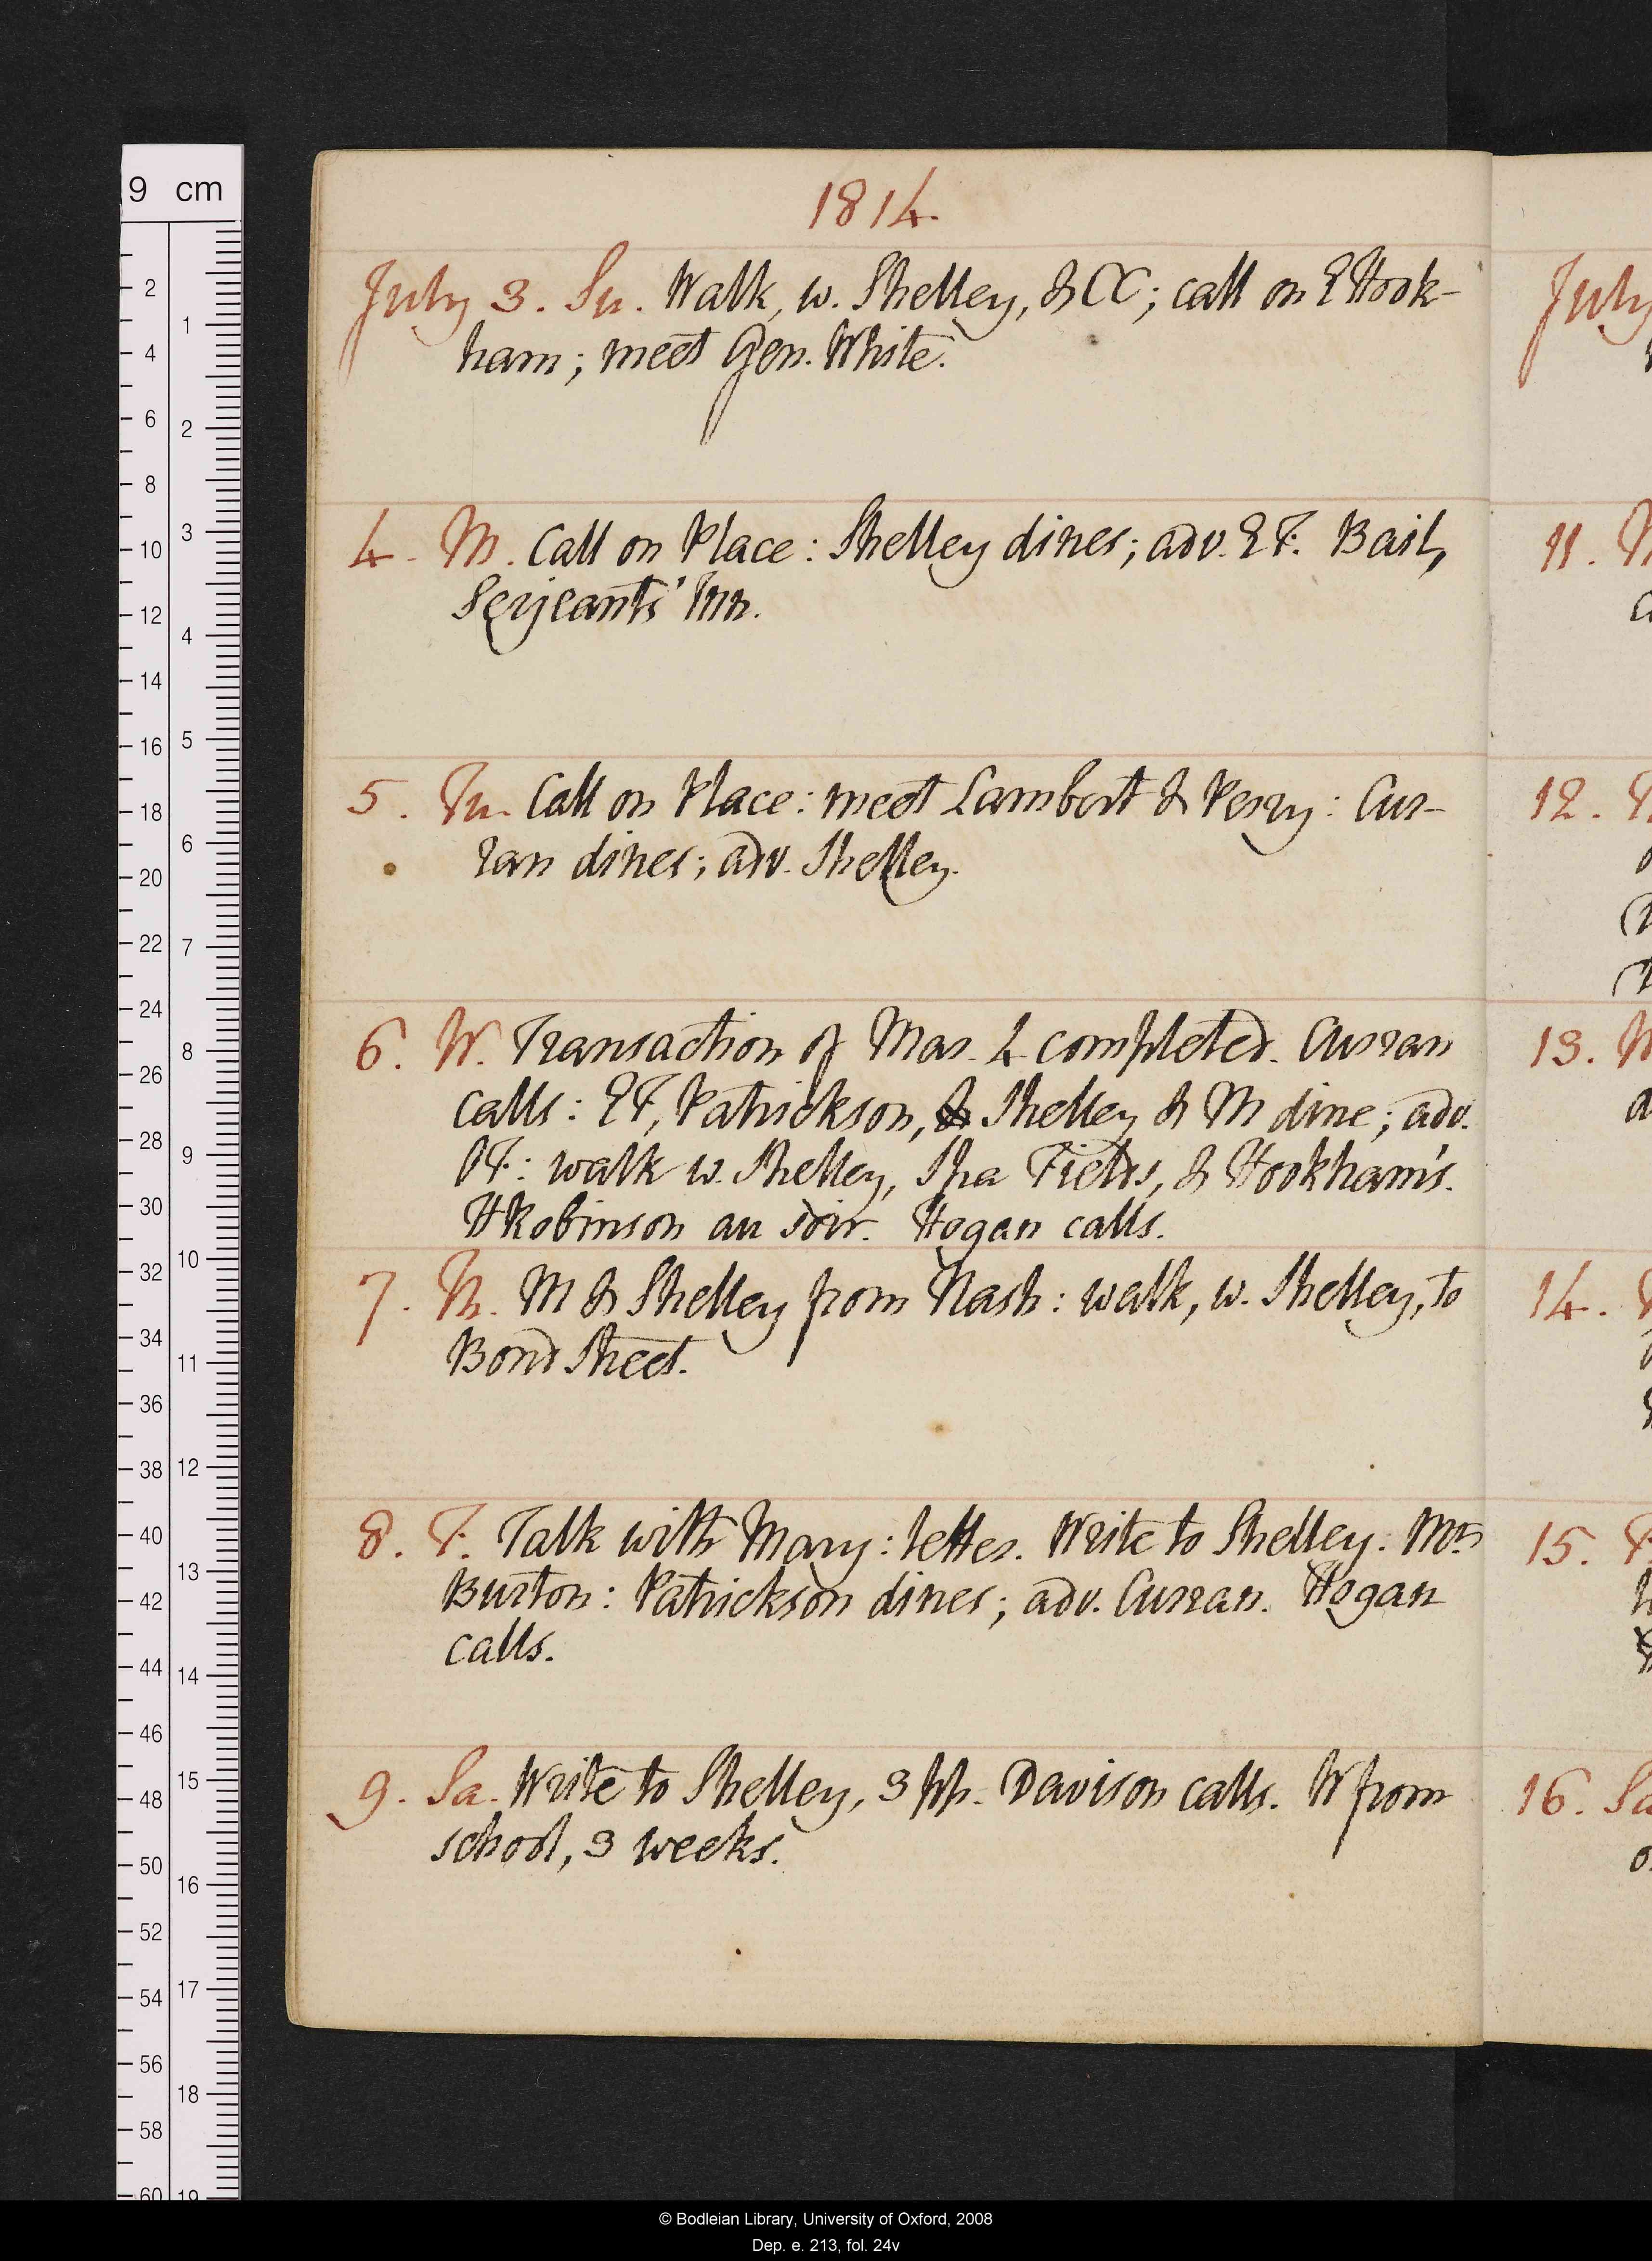 1814.
July 3. Su. Walk, w. Shelley, & CC; call on E Hook-
ham; meet Gen. White.
4. M. Call on Place: Shelley dines; adv. EF. Bail,
Serjeants' Inn.
5. Tu. Call on Place: meet Lambert & Perry: Cur-
ran dines; adv. Shelley.
6. W. Transaction of Mar. 4 completed. Curran
calls: EF, Patrickson, & Shelley & M dine; adv.
PF: walk w. Shelley, Spa Fields, & Hookham's.
HRobinson au soir. Hogan calls.
7. Th. M & Shelley from Nash: walk, w. Shelley, to
Bond Street.
8. F. Talk with Mary: letter. Write to Shelley: Mrs
Burton: Patrickson dines; adv. Curran. Hogan
calls.
9. Sa. Write to Shelley, 3 pp. Davison calls. W from
school, 3 weeks.
July
11.
12.
13.
14.
15.
16. Sa
9 cm
2
4
6
8
10
12
14
16
18
20
22
24
26
28
30
32
34
36
38
40
42
44
46
48
50
52
54
56
58
60
1
2
3
4
5
6
7
8
9
10
11
12
13
14
15
16
17
18
19
© Bodleian Library, University of Oxford, 2008
Dep. e. 213, fol. 24v